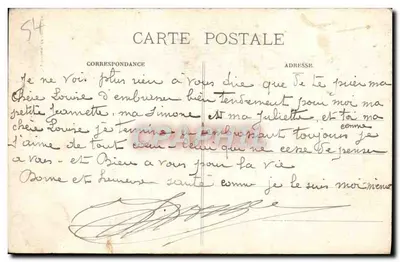 54
CARTE POSTALE
CORRESPONDANCE
ADRESSE
Je ne vois plus rien a vous dire que de te prier ma
chère Louise d'embrasser bien tendrement pour moi ma
petite Jeannette, ma Simone et ma Juliette, et toi ma
chère Louise je termine en embrassant toujours comme
j'aime de tout cœur celui qui ne cesse de penser
a vous et Bien a vous pour la vie
Bonne et heureuse santé comme je le suis moi même